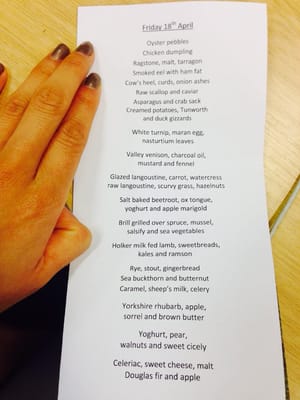 Friday 18th April
Oyster pebbles
Chicken dumpling
Ragstone, malt, tarragon
Smoked eel with ham fat
Cow's heel, curds, onion ashes
Raw scallop and caviar
Asparagus and crab sack
Creamed potatoes, Tunworth
and duck gizzards
White turnip, maran egg,
nasturtium leaves
Valley venison, charcoal oil,
mustard and fennel
Glazed langoustine, carrot, watercress
raw langoustine, scurvy grass, hazelnuts
Salt baked beetroot, ox tongue,
yoghurt and apple marigold
Brill grilled over spruce, mussel,
salsify and sea vegetables
Holker milk fed lamb, sweetbreads,
kales and ramson
Rye, stout, gingerbread
Sea buckthorn and butternut
Caramel, sheep's milk, celery
Yorkshire rhubarb, apple,
sorrel and brown butter
Yoghurt, pear,
walnuts and sweet cicely
Celeriac, sweet cheese, malt
Douglas fir and apple